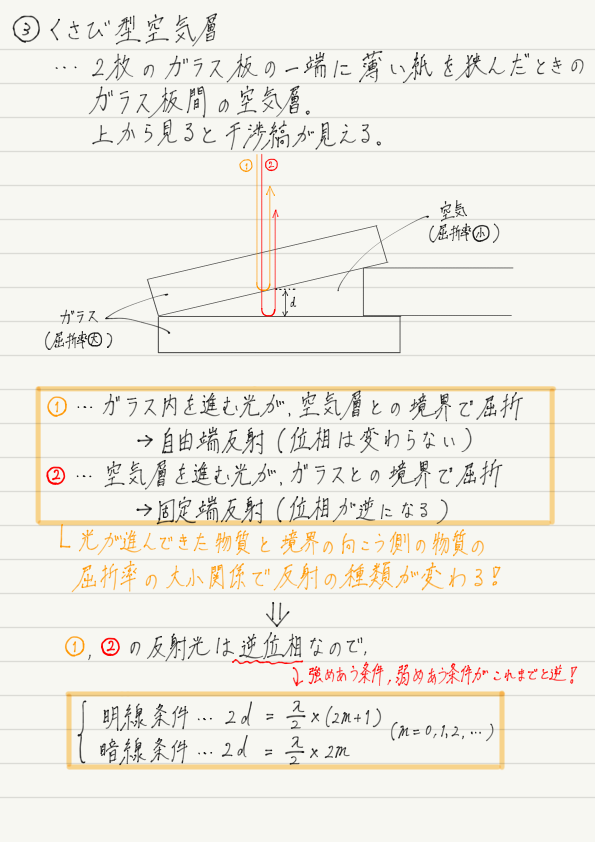 ③ くさび型空気層
… 2枚のガラス板の一端に薄い紙を挟んだときの
ガラス板間の空気層。
上から見ると干渉縞が見える。
① ②
空気
(屈折率㊙小)
d
ガラス
(屈折率大)
① … ガラス内を進む光が、空気層との境界で屈折
→ 自由端反射 (位相は変わらない)
② … 空気層を進む光が、ガラスとの境界で屈折
→ 固定端反射 (位相が逆になる)
光が進んできた物質と境界の向こう側の物質の
屈折率の大小関係で反射の種類が変わる!
⇓
①, ② の反射光は逆位相なので、
↳ 強めあう条件, 弱めあう条件がこれまでと逆!
明線条件 … 2d = λ/2 × (2m+1)
(m=0,1,2,…)
暗線条件 … 2d = λ/2 × 2m